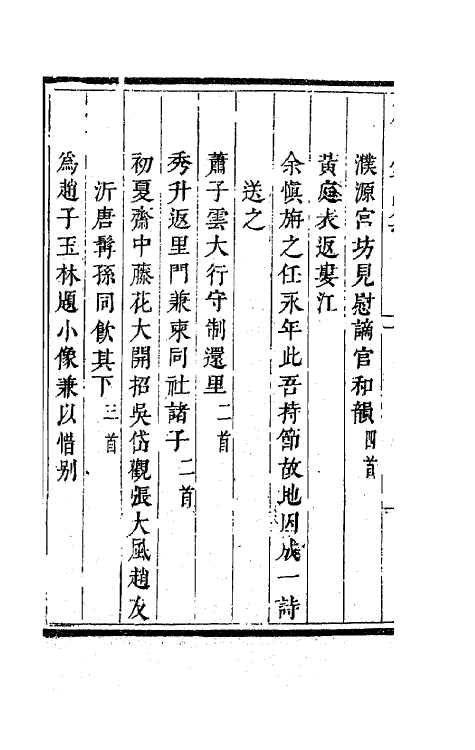 濮源宮坊見慰謫官和韻四首
黃庭表返婁江
余愼旃之任永年此吾持節故地因成一詩
送之
蕭子雲大行守制還里二首
秀升返里門兼柬同社諸子二首
初夏齋中藤花大開招吳岱觀張大風趙友
沂唐髯孫同飮其下三首
爲趙子玉林題小像兼以惜别